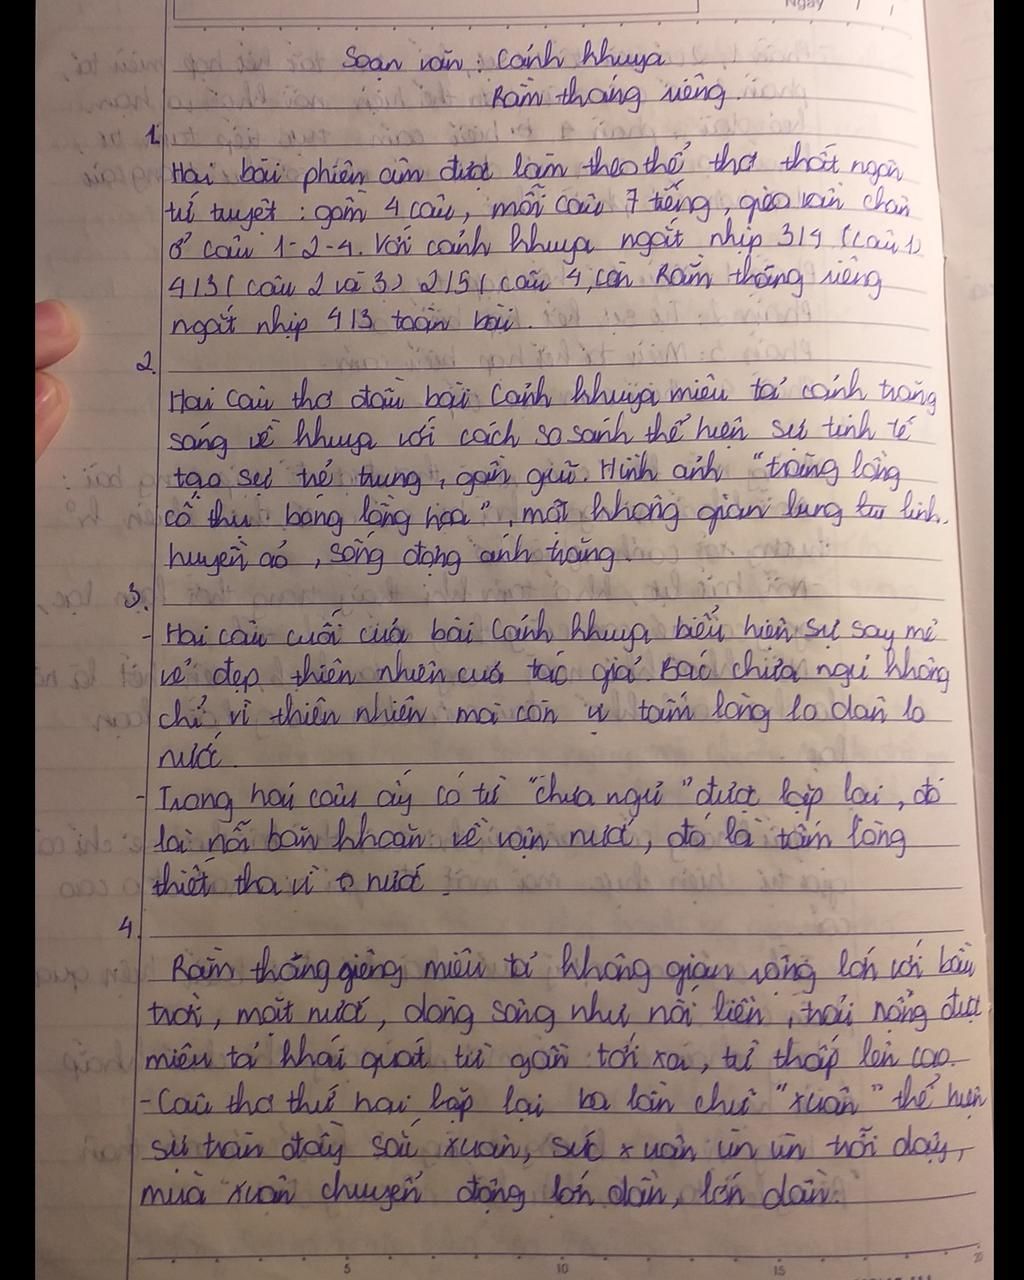 Ngày / /
Soạn văn : Cảnh khuya
Rằm tháng riêng.
1.
Hai bài phiên âm được làm theo thể thơ thất ngôn
tứ tuyệt : gồm 4 câu, mỗi câu 7 tiếng, gieo vần chân
ở câu 1-2-4. Với cảnh khuya ngắt nhịp 3/4 (câu 1)
4/3 ( câu 2 và 3) 2/5 ( câu 4, còn Rằm tháng riêng
ngắt nhịp 4/3 toàn bài.
2.
Hai câu thơ đầu bài Cảnh khuya miêu tả cảnh trăng
sáng về khuya với cách so sánh thể hiện sự tinh tế
tạo sự trẻ trung, gần gũi. Hình ảnh "trăng lồng
cổ thụ bóng lồng hoa", một không gian lung linh,
huyền ảo, sống động ánh trăng.
3.
- Hai câu cuối của bài Cảnh khuya biểu hiện sự say mê
vẻ đẹp thiên nhiên của tác giả. Bác chưa ngủ không
chỉ vì thiên nhiên mà còn vì tấm lòng lo dân lo
nước.
- Trong hai câu ấy có từ "chưa ngủ" được lặp lại, đó
là nỗi băn khoăn về vận nước, đó là tấm lòng
thiết tha vì nước.
4.
Rằm tháng giêng miêu tả không gian rộng lớn với bầu
trời, mặt nước, dòng sông như nối liền, trải rộng được
miêu tả khái quát từ gần tới xa, từ thấp lên cao.
- Câu thơ thứ hai lặp lại ba lần chữ "xuân" thể hiện
sự tràn đầy sắc xuân, sức xuân ùn ùn trỗi dậy,
mùa xuân chuyển động lớn dần, lớn dần.
5 10 15 20